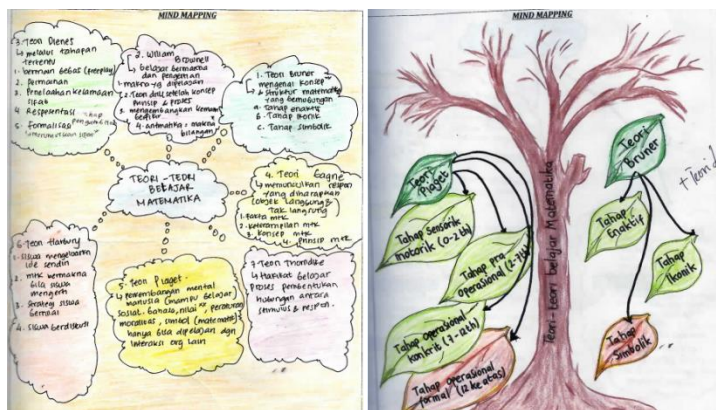 MIND MAPPING
3. Teori Dienes
↳ melalui tahapan
tertentu
1. bermain bebas (freeplay)
2. Permainan
3. Penelaahan kesamaan
sifat
4. Respresentasi
5. formalisasi
2. William
Brownell
belajar bermakna
dan pengertian
4. aritmatika, makna
bilangan
1. Teori Bruner
mengenal konsep
& struktur matematika
yang
a. Tahap enaktif
b. Tahap ikonik
c. Tahap simbolik
TEORI-TEORI
BELAJAR
MATEMATIKA
4. Teori Gagne
↳ memunculkan respon
yang diharapkan
(objek langsung &
tak langsung
1. fakta mtk
2. keterampilan mtk
3. konsep mtk
4. Prinsip mtk
6. Teori
1. siswa mengeluarkan
ide sendiri
2. mtk bermakna
bila siswa
mengerti
3. strategi siswa
4. siswa berdiskusi
5. teori Piaget
↳ perkembangan mental
manusia (mampu belajar)
sosial. bahasa, nilai", peraturan
moralitas, simbol (matematik)
hanya bisa dipelajari dgn
interaksi org lain
7. Teori Thorndike
↳ Hakikat belajar
proses pembentukan
hubungan antara
stimulus & respon.
MIND MAPPING
Teori Piaget
Tahap sensorik
motorik (0-2 th)
Tahap pra
operasional (2-7th)
Tahap operasional
konkrit (7-12th)
Tahap operasional
formal (12 ke atas)
Teori-teori belajar Matematika
Teori
Bruner
Tahap
Enaktif
Tahap
Ikonik
Tahap
Simbolik